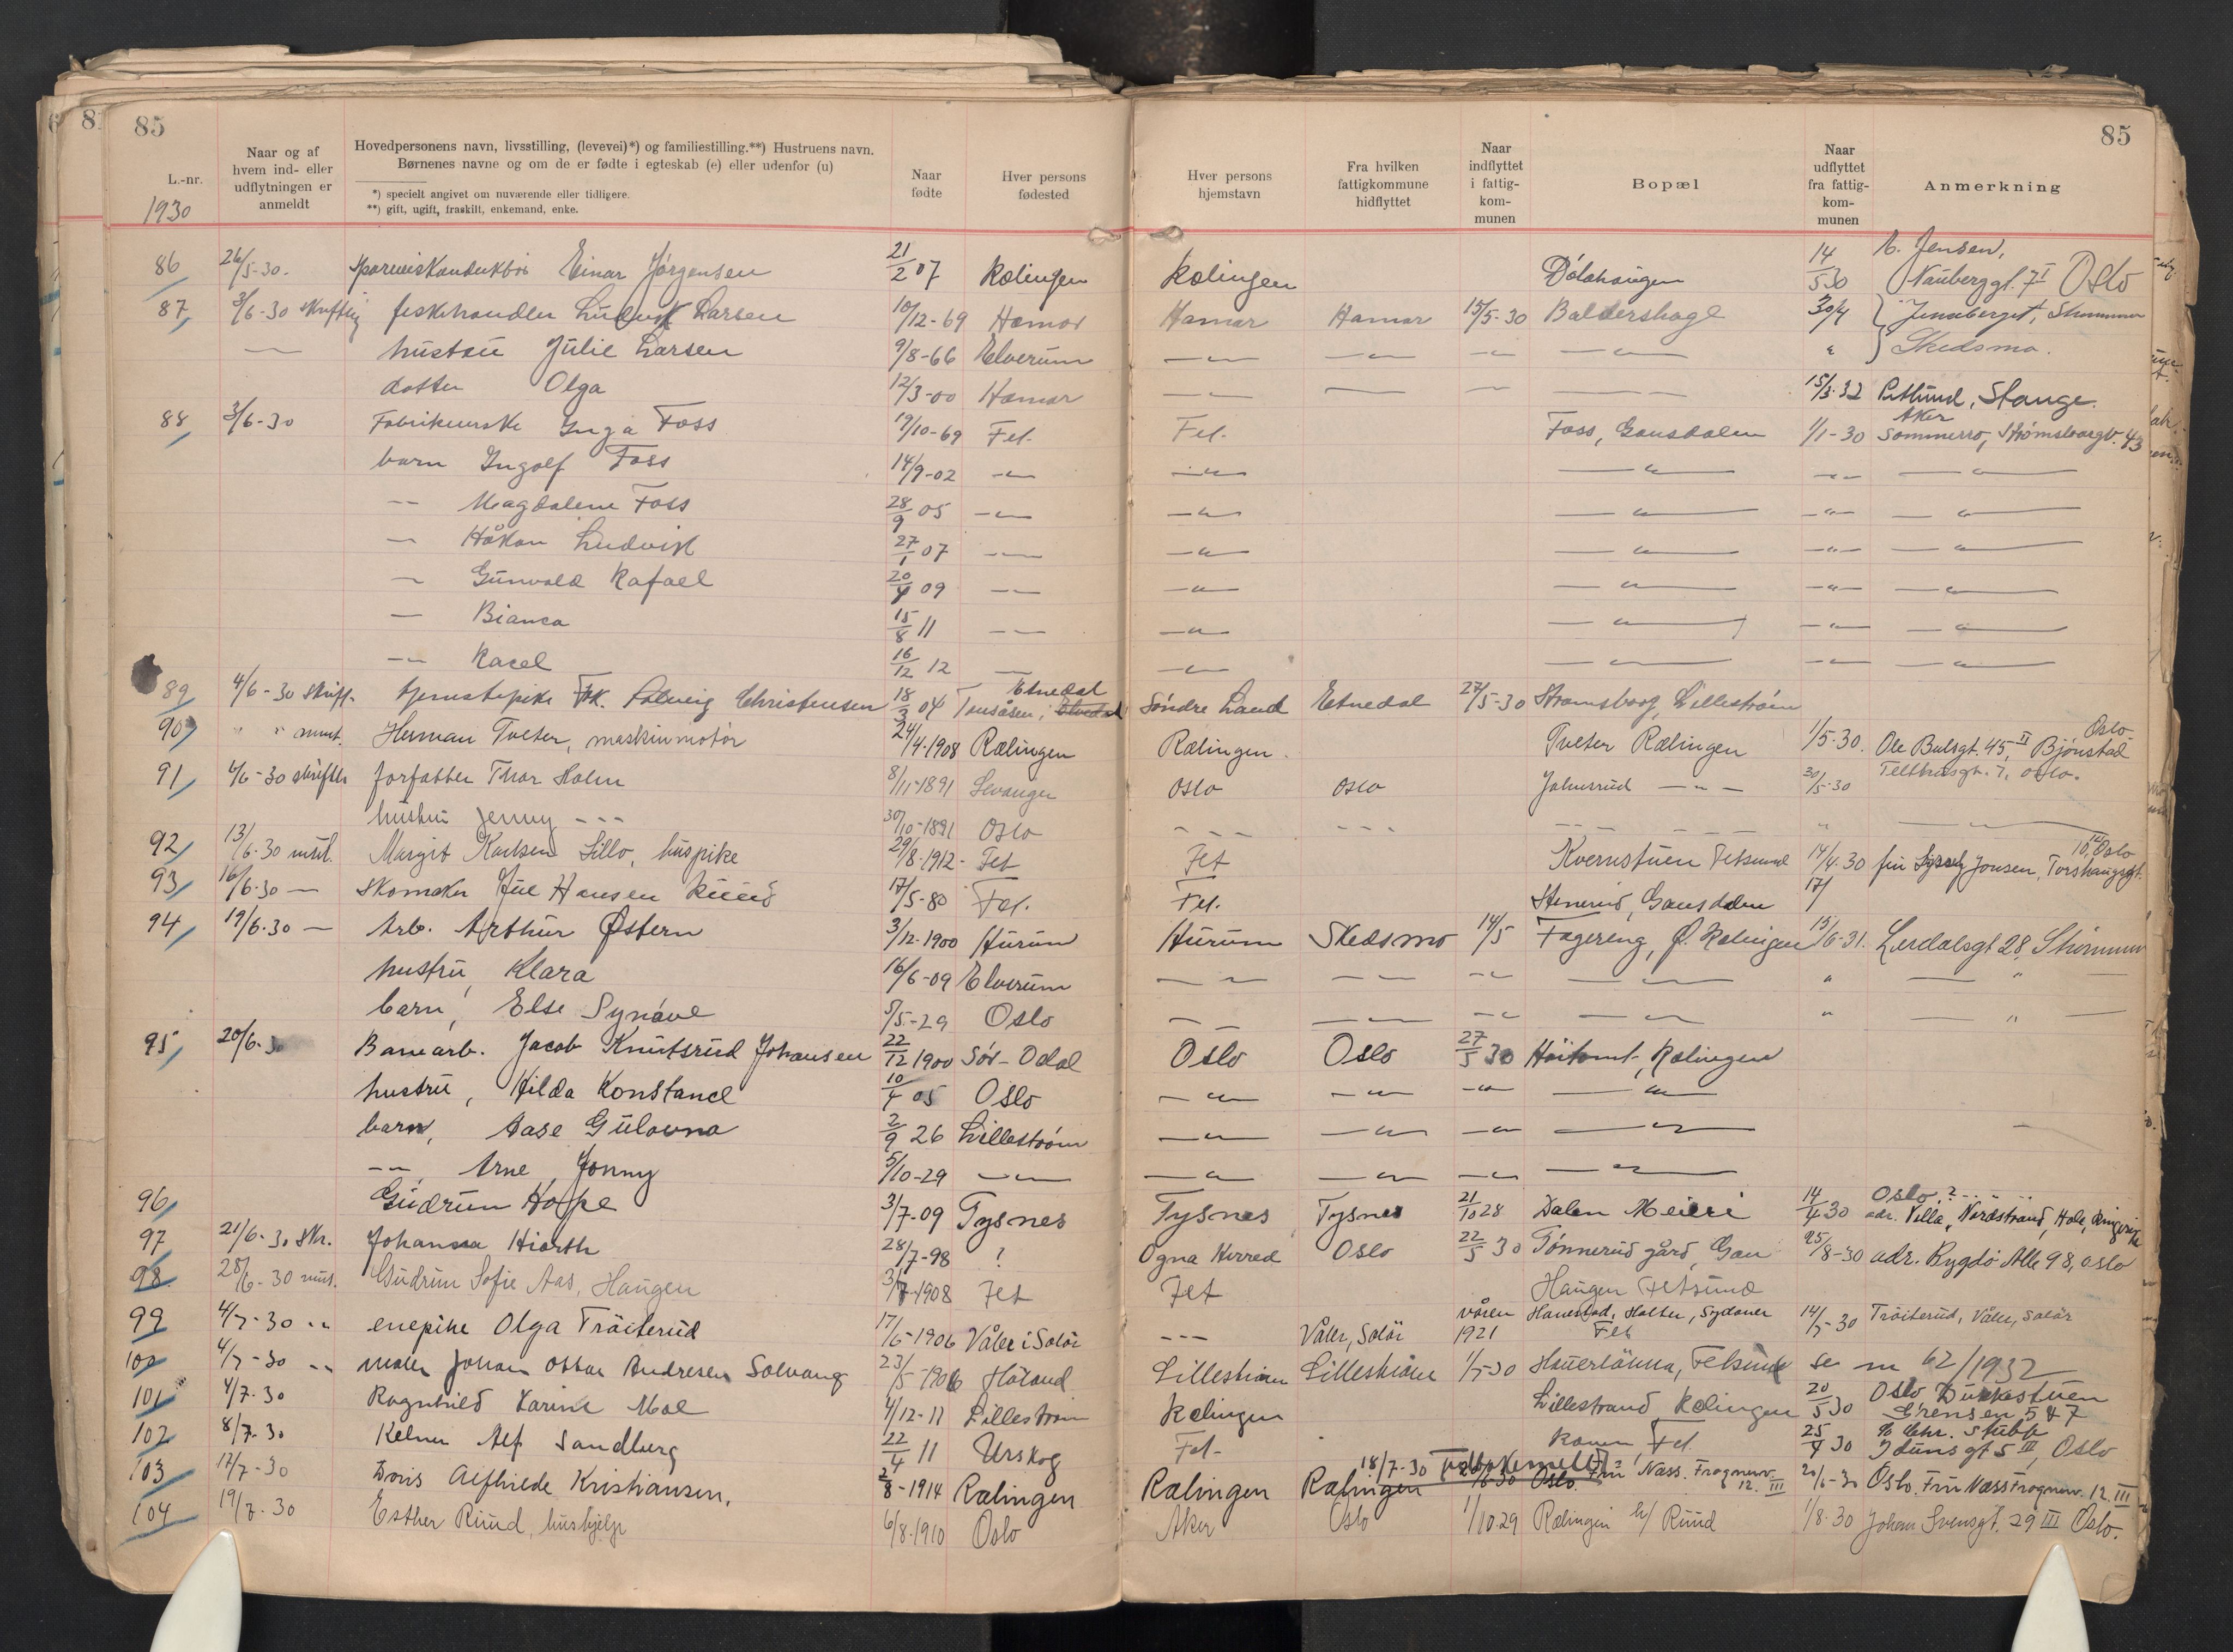 85
85
L.-nr.
1930
Naar og af hvem ind- eller udflytningen er anmeldt
Hovedpersonens navn, livsstilling, (levevei)*) og familiestilling.**) Hustruens navn.
Børnenes navne og om de er fødte i egteskab (e) eller udenfor (u)
*) specielt angivet om nuværende eller tidligere.
**) gift, ugift, fraskilt, enkemand, enke.
Naar fødte
Hver persons fødested
Hver persons hjemstavn
Fra hvilken fattigkommune hidflyttet
Naar indflyttet i fattig-kom-munen
Bopæl
Naar udflyttet fra fattig-kom-munen
Anmerkning
86 26/5-30. Einar Jørgensen 21/2 07 Rælingen Rælingen Dølahaugen 14/5 30 Jensen, 7 I Oslo
87 3/6-30 skriftlig fiskehandler Ludvik Larsen 10/12-69 Hamar Hamar Hamar 15/5-30 Baldershage 30/4 Strømmen
— hustru Julie Larsen 9/8-66 Elverum —"— —"— —"— —"— " Skedsmo.
datter Olga 12/3-00 Hamar —"— — — — 15/3-32 Stange.
88 3/6-30 Inga Foss 19/10-69 Fet. Fet. Foss, Gansdalen 1/1-30 Aker Sommerro, 43
barn Ingolf Foss 14/9-02 —"— —"— —"— —"— —"—
—"— Magdalene Foss 28/9 05 —"— —"— —"— —"— —"—
— Håkon Ludvik 27/1 07 —"— —"— —"— —"— —"—
— Gunvald Rafael 20/4 09 —"— —"— —"— —"— —"—
— Bianca 15/8 11 —"— —"— —"— —"— —"—
—"— Racel 16/12 12 — —"— —"— —"— —"—
89 4/6-30 skrift. tjenestepike Frk. Solveig Christensen 18/3 04 Tonsåsen, Etnedal Søndre Land Etnedal 27/5-30 Strømsborg, Lillestrøm
90 " " munt. Herman Tveter, maskinmotør 24/4-1908 Rælingen Rælingen. Tveter Rælingen 1/5-30. Ole Bulsgt. 45, II Bjønstad Oslo.
91 4/6-30 skriftli forfatter Thor Holm 8/11-1891 Levanger Oslo Oslo Jahnsrud —"— 30/5-30 Telthusgt. 7, Oslo.
hustru Jenny --- 30/10-1891 Oslo --- --- --- --- " —
92 13/6-30 mdl. Margit Karlsen Lillo, huspike 29/8-1912- Fet Fet Kvernstuen Fetsund 14/4.30 Jonsen, Torshaugsgt. 10, Oslo
93 16/6-30 — skomaker Jul Hansen Ruud 17/5-80 Fet. Fet. Stenerud, Gansdalen 17/
94 19/6-30 — Arb. Arthur Østern 3/12-1900 Hurum Hurum Skedsmo 14/5 Fagereng, Ø. Rælingen 15/6-31. Lerdalsgt 28, Strømmen
hustru, Klara 16/6-09 Elverum — — — — —"— —"— " — " —
barn, Else Synøve 5/5-29 Oslo — — —"— —"— —"— " — " —
95 20/6-30 Banearb. Jacob Knutsrud Johansen 22/12 1900 Sør-Odal Oslo Oslo 27/5 30 Høitomt, Rælingen
hustru, Hilda Konstance 10/4 05 Oslo —"— —"— —"— —"—
barn, Aase Gulovna 2/9 26 Lillestrøm —"— —"— —"— —"—
—"—, Arne Jonny 5/10-29 —"— —"— —"— —"— —"—
96 Gudrun Hope 3/7-09 Tysnes Tysnes Tysnes 21/10 28 Dalen Meieri 14/4 30 Oslo? adr. Villa, Nordstrand, Hole, Ringerike
97 21/6-30 skr. Johanna Hiorth 28/7-98 ? Ogna Herred Oslo 22/5 30 Tønnerud gård, Gan 25/8-30 adr. Bygdø Alle 98, Oslo
98 28/6-30 mut. Gudrun Sofie Aas, Haugen 3/7-1908 Fet Fet Haugen Fetsund
99 4/7-30 " enepike Olga Trøiterud 17/6-1906 Våler i Solør --- Våler, Solør våren 1921 Hanestad, Holter, Fet 14/5-30 Trøiterud, Våler, Solør
100 4/7-30 " maler Johan Oskar Andresen Solvang 23/5-1906 Høland Lillestrøm Lillestrøm 1/5-30 Fetsund se nr 62/1932
101 4/7-30 Ragnhild Karine Moe 4/12-11 Lillestrøm Rælingen Lillestrand Rælingen 20/5 30 Oslo Dukkestuen Grensen 5 & 7
102 8/7-30 Kelner Alf Sandberg 22/4 11 Urskog Fet. Fet. 25/4 30 % Chr. Stubb Idunsgt 5 III, Oslo
103 12/7-30 Doris Alfhilde Kristiansen, 2/8-1914 Rælingen Rælingen Rælingen 18/7-30 20/6-30 Oslo. Fru Næss. Frognerv. 12. III 20/6-30 Oslo. Fru Næss Frognerv. 12. III
104 19/7-30 Esther Ruud, hushjelp 6/8-1910 Oslo Aker Oslo 1/10.29 Rælingen h/ Ruud 1/8-30 Johan Svensgt. 29 III Oslo.